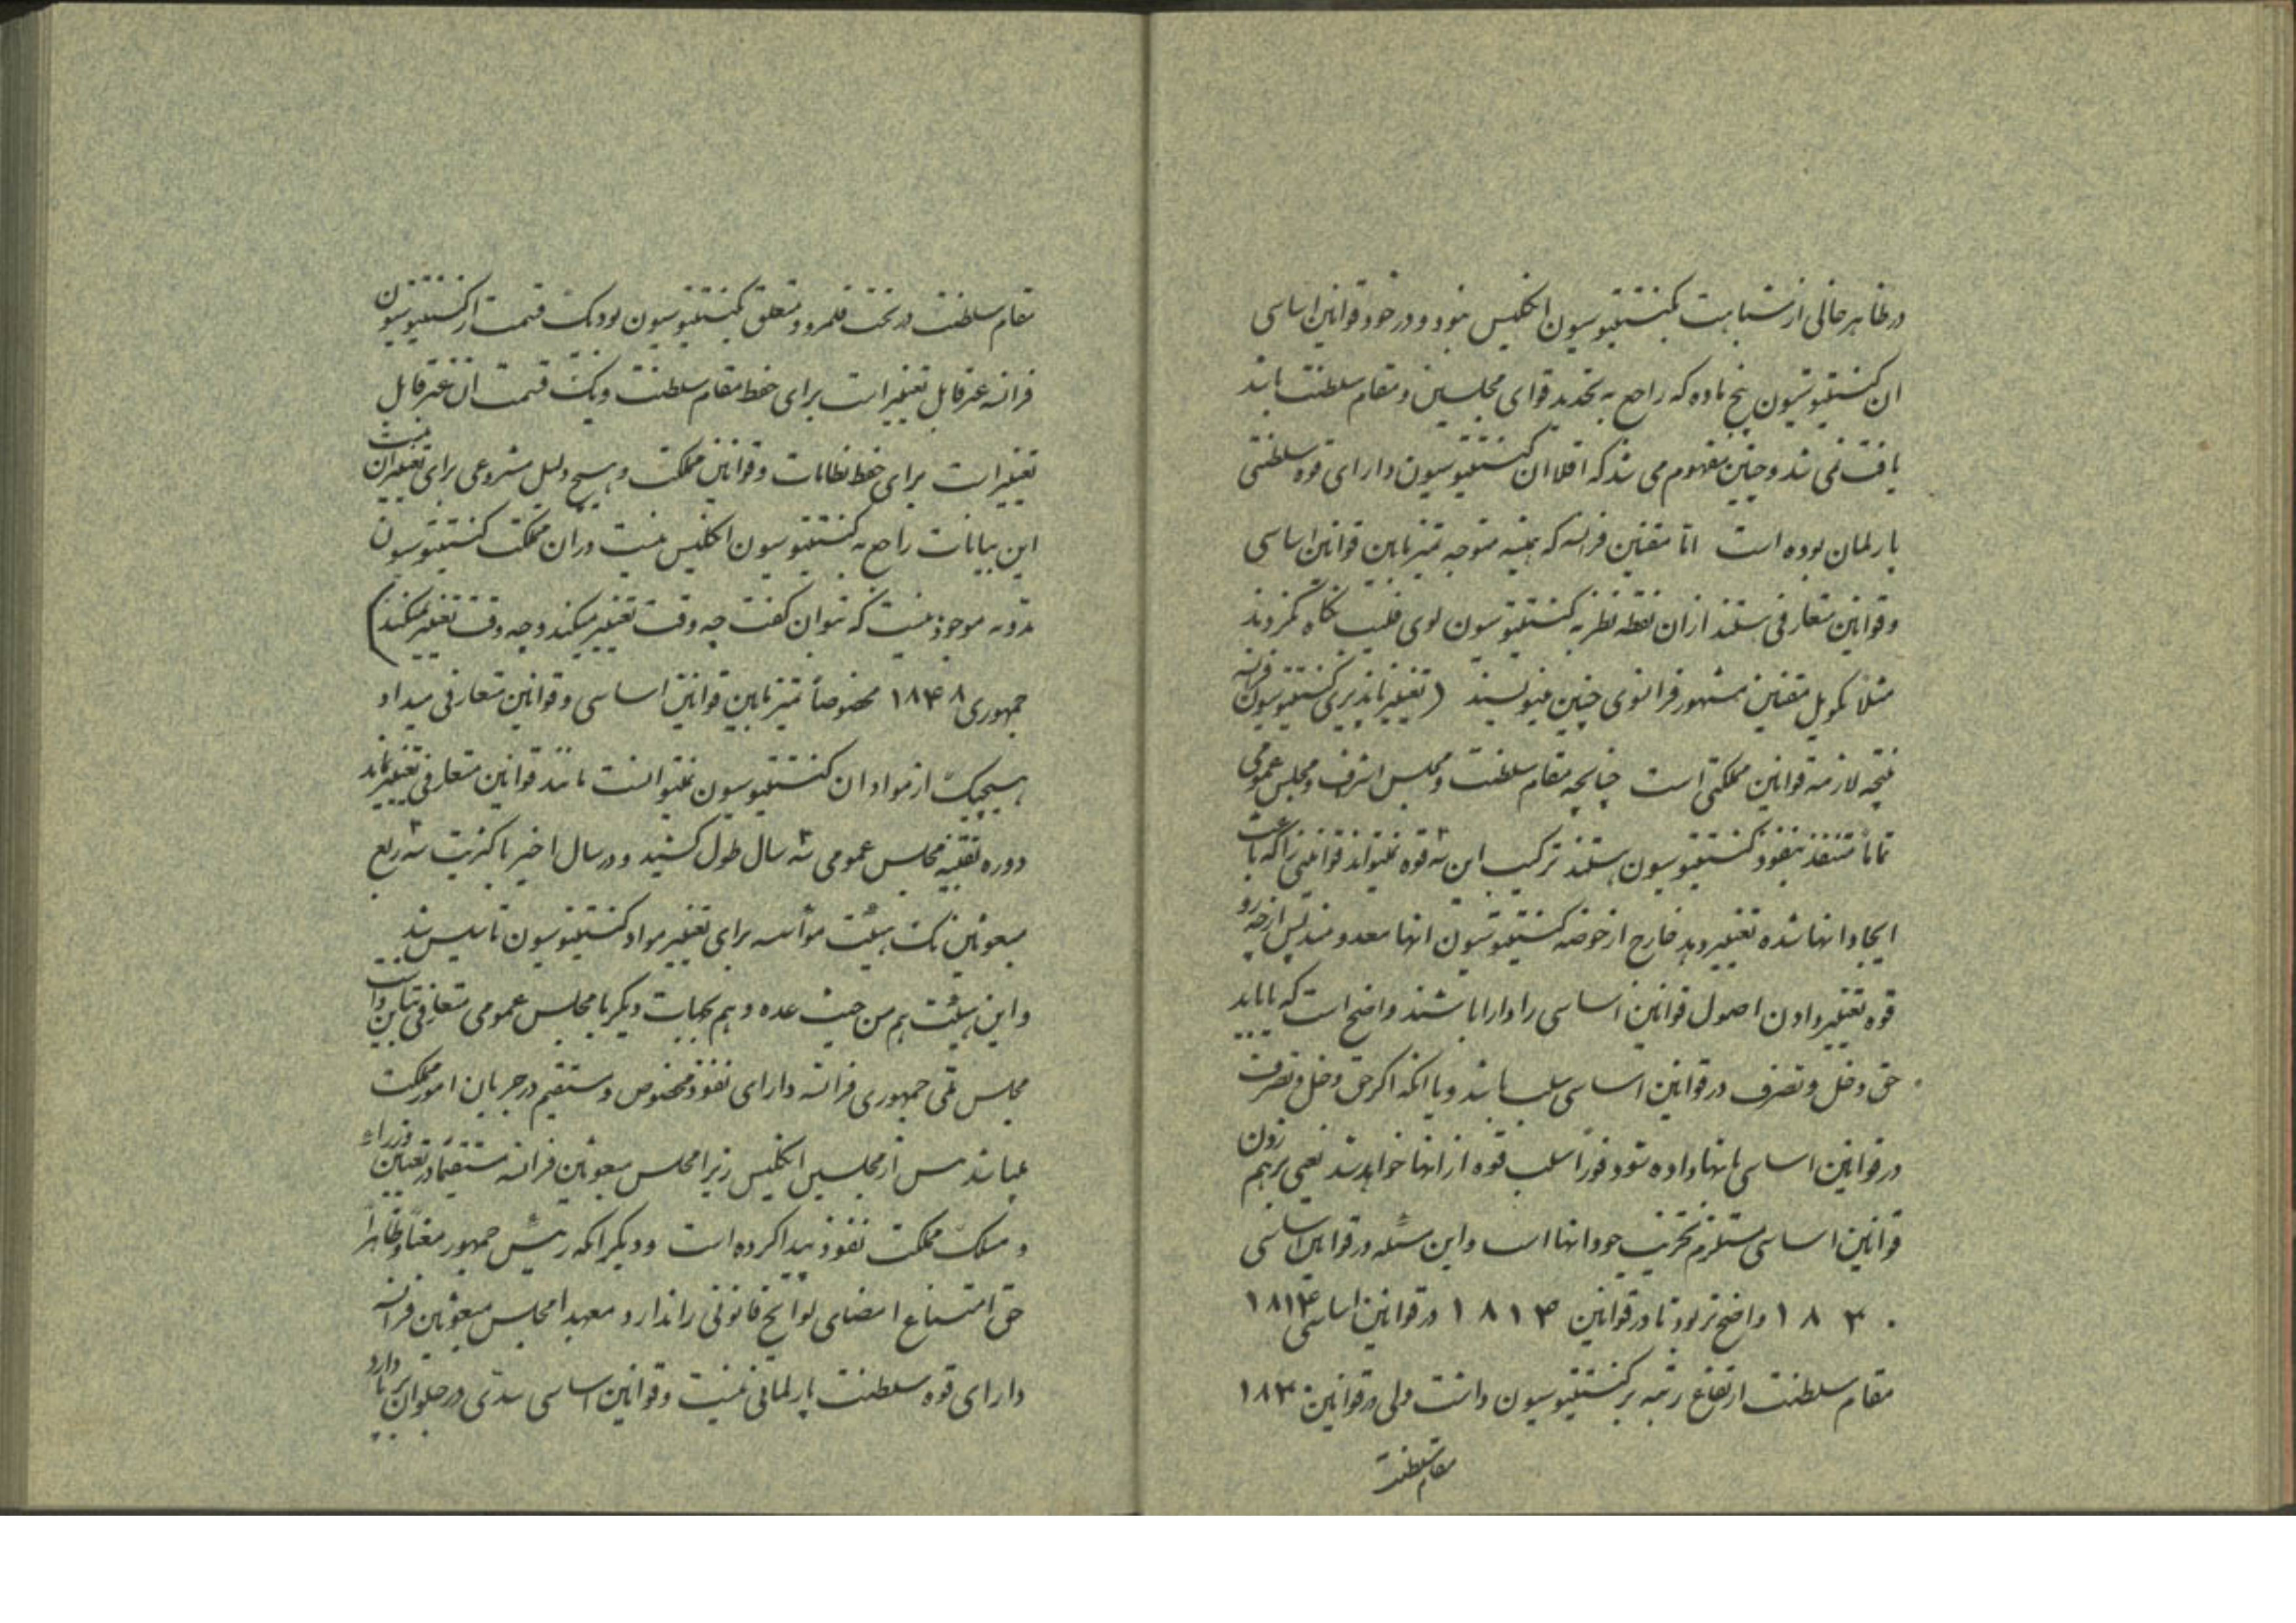 در ظاهر خالی از شباهت بکنستیتیوسیون انگلیس نبود و در خود قوانین اساسی
ان کنستیتیوسیون هیچ ماده که راجع به تحدید قوای مجلسین و مقام سلطنت باشد
یافت نمی شد و چنین مفهوم می شد که اقلا ان کنستیتیوسیون دارای قوه سلطنتی
پارلمان بوده است اما مقننین فرانسه که همیشه متوجه تمیز مابین قوانین اساسی
و قوانین متعارفی هستند از ان نقطه نظر به کنستیتیوسیون لوی فلیپ نگاه نکردند
مثلاً تکویل مقنن مشهور فرانسوی چنین مینویسد (تغییر ناپذیری کنستیتیوسیون فرانسه
نتیجه لازمه قوانین مملکتی است چنانچه مقام سلطنت و مجلس اشراف و مجلس عمومی
تماماً متنفذ بنفوذ کنستیتیوسیون هستند ترکیب این سه قوه نمیتواند قوانینی را که باعث
ایجاد انها شده تغییر دهد خارج از حوضه کنستیتیوسیون انها معدومند پس از چه رو
قوه تغییر دادن اصول قوانین اساسی را دارا باشند واضح است که یا باید
حق دخل و تصرف در قوانین اساسی سلب باشد و یا انکه اگر حق دخل و تصرف
در قوانین اساسی بانها داده شود فوراً سلب قوه از انها خواهد شد یعنی برهم زدن
قوانین اساسی مستلزم تخریب خود انها است و این مسئله در قوانین اساسی
۱۸۳۰ واضح تر بود تا در قوانین ۱۸۱۴ در قوانین اساسی ۱۸۱۴
مقام سلطنت ارتفاع رتبه بر کنستیتیوسیون داشت ولی در قوانین ۱۸۳۰
مقام سلطنت
مقام سلطنت در تحت قلمرو و متعلق بکنستیتیوسیون بود یک قسمت از کنستیتیوسیون
فرانسه غیر قابل تغییر است برای حفظ مقام سلطنت و یک قسمت ان غیر قابل
تغییر است برای حفظ نظامات و قوانین مملکت و هیچ دلیل مشروعی برای تغییر ان نیست
این بیانات راجع به کنستیتیوسیون انگلیس نیست در ان مملکت کنستیتیوسیون
مدونه موجود نیست که بتوان گفت چه وقت تغییر میکند و چه وقت تغییر نمیکند)
جمهوری ۱۸۴۸ مخصوصاً تمیز مابین قوانین اساسی و قوانین متعارفی میداد
هیچیک از مواد ان کنستیتیوسیون نمیتوانست مانند قوانین متعارفی تغییر یابد
دوره تقنینیه مجلس عمومی سه سال طول کشید و در سال اخیر با اکثریت سه ربع
مبعوثین یک هیئت موأسسه برای تغییر مواد کنستیتیوسیون تاسیس شد
و این هیئت هم من حیث عده و هم بجهات دیگر با مجلس عمومی متعارفی تباین داشت
مجلس ملی جمهوری فرانسه دارای نفوذ مخصوص و مستقیم در جریان امور مملکت
میباشد پس از مجلسین انگلیس زیرا مجلس مبعوثین فرانسه مستقیماً در تعیین وزراء
و مسلک مملکت نفوذ پیدا کرده است و دیگر انکه رئیس جمهور معناً و ظاهراً
حق امتناع امضای لوایح قانونی را ندارد و معهذا مجلس مبعوثین فرانسه
دارای قوه سلطنت پارلمانی نیست و قوانین اساسی سدّی در جلو ان برپا دارد